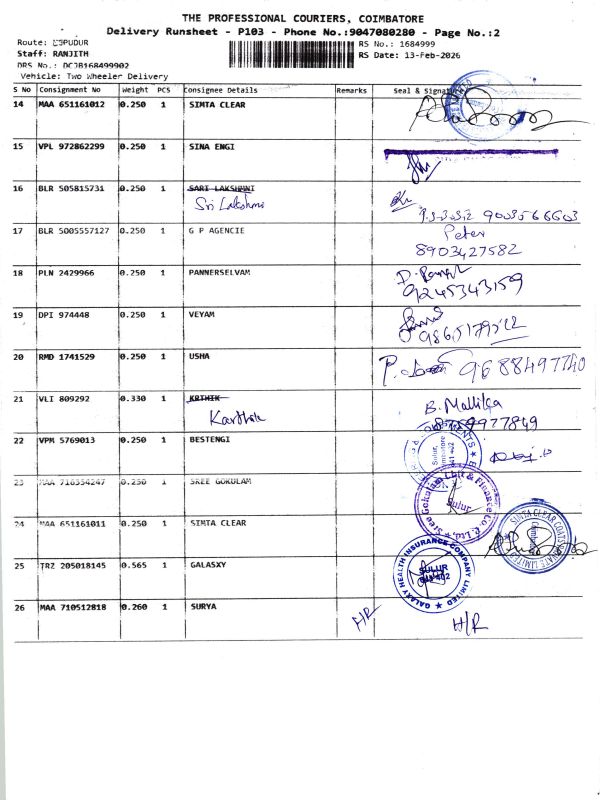 THE PROFESSIONAL COURIERS, COIMBATORE
Delivery Runsheet - P103 - Phone No.:9047080280 - Page No.:2
Route: 
Staff: RANJITH
DRS No.: DCJB168499902
Vehicle: Two Wheeler Delivery
RS No.: 1684999
RS Date: 13-Feb-2026
S No Consignment No Weight PCS Consignee Details Remarks Seal & Signature
14 MAA 651161012 0.250 1 SIMTA CLEAR
15 VPL 972862299 0.250 1 SINA ENGI
16 BLR 505815731 0.250 1 SARI LAKSHMNI
Sri Lakshmi
9003566603
17 BLR 5005557127 0.250 1 G P AGENCIE
Peter
8903427582
18 PLN 2429966 0.250 1 PANNERSELVAM
9245343159
19 DPI 974448 0.250 1 VEYAM
20 RMD 1741529 0.250 1 USHA
9688497740
21 VLI 809292 0.330 1 KRTHIK
Karthik
B. Mallika
8759977849
22 VPM 5769013 0.250 1 BESTENGI
23 MAA 710354247 0.250 1 SREE GOKULAM
Sree Gokulam Chit & Finance Co. P. Ltd.,
Sulur
24 MAA 651161011 0.250 1 SIMTA CLEAR
SIMTA CLEAR COATS PRIVATE LIMITED
25 TRZ 205018145 0.565 1 GALASXY
GALAXY HEALTH INSURANCE COMPANY LIMITED
SULUR
641 402
26 MAA 710512818 0.260 1 SURYA
H/R H/R